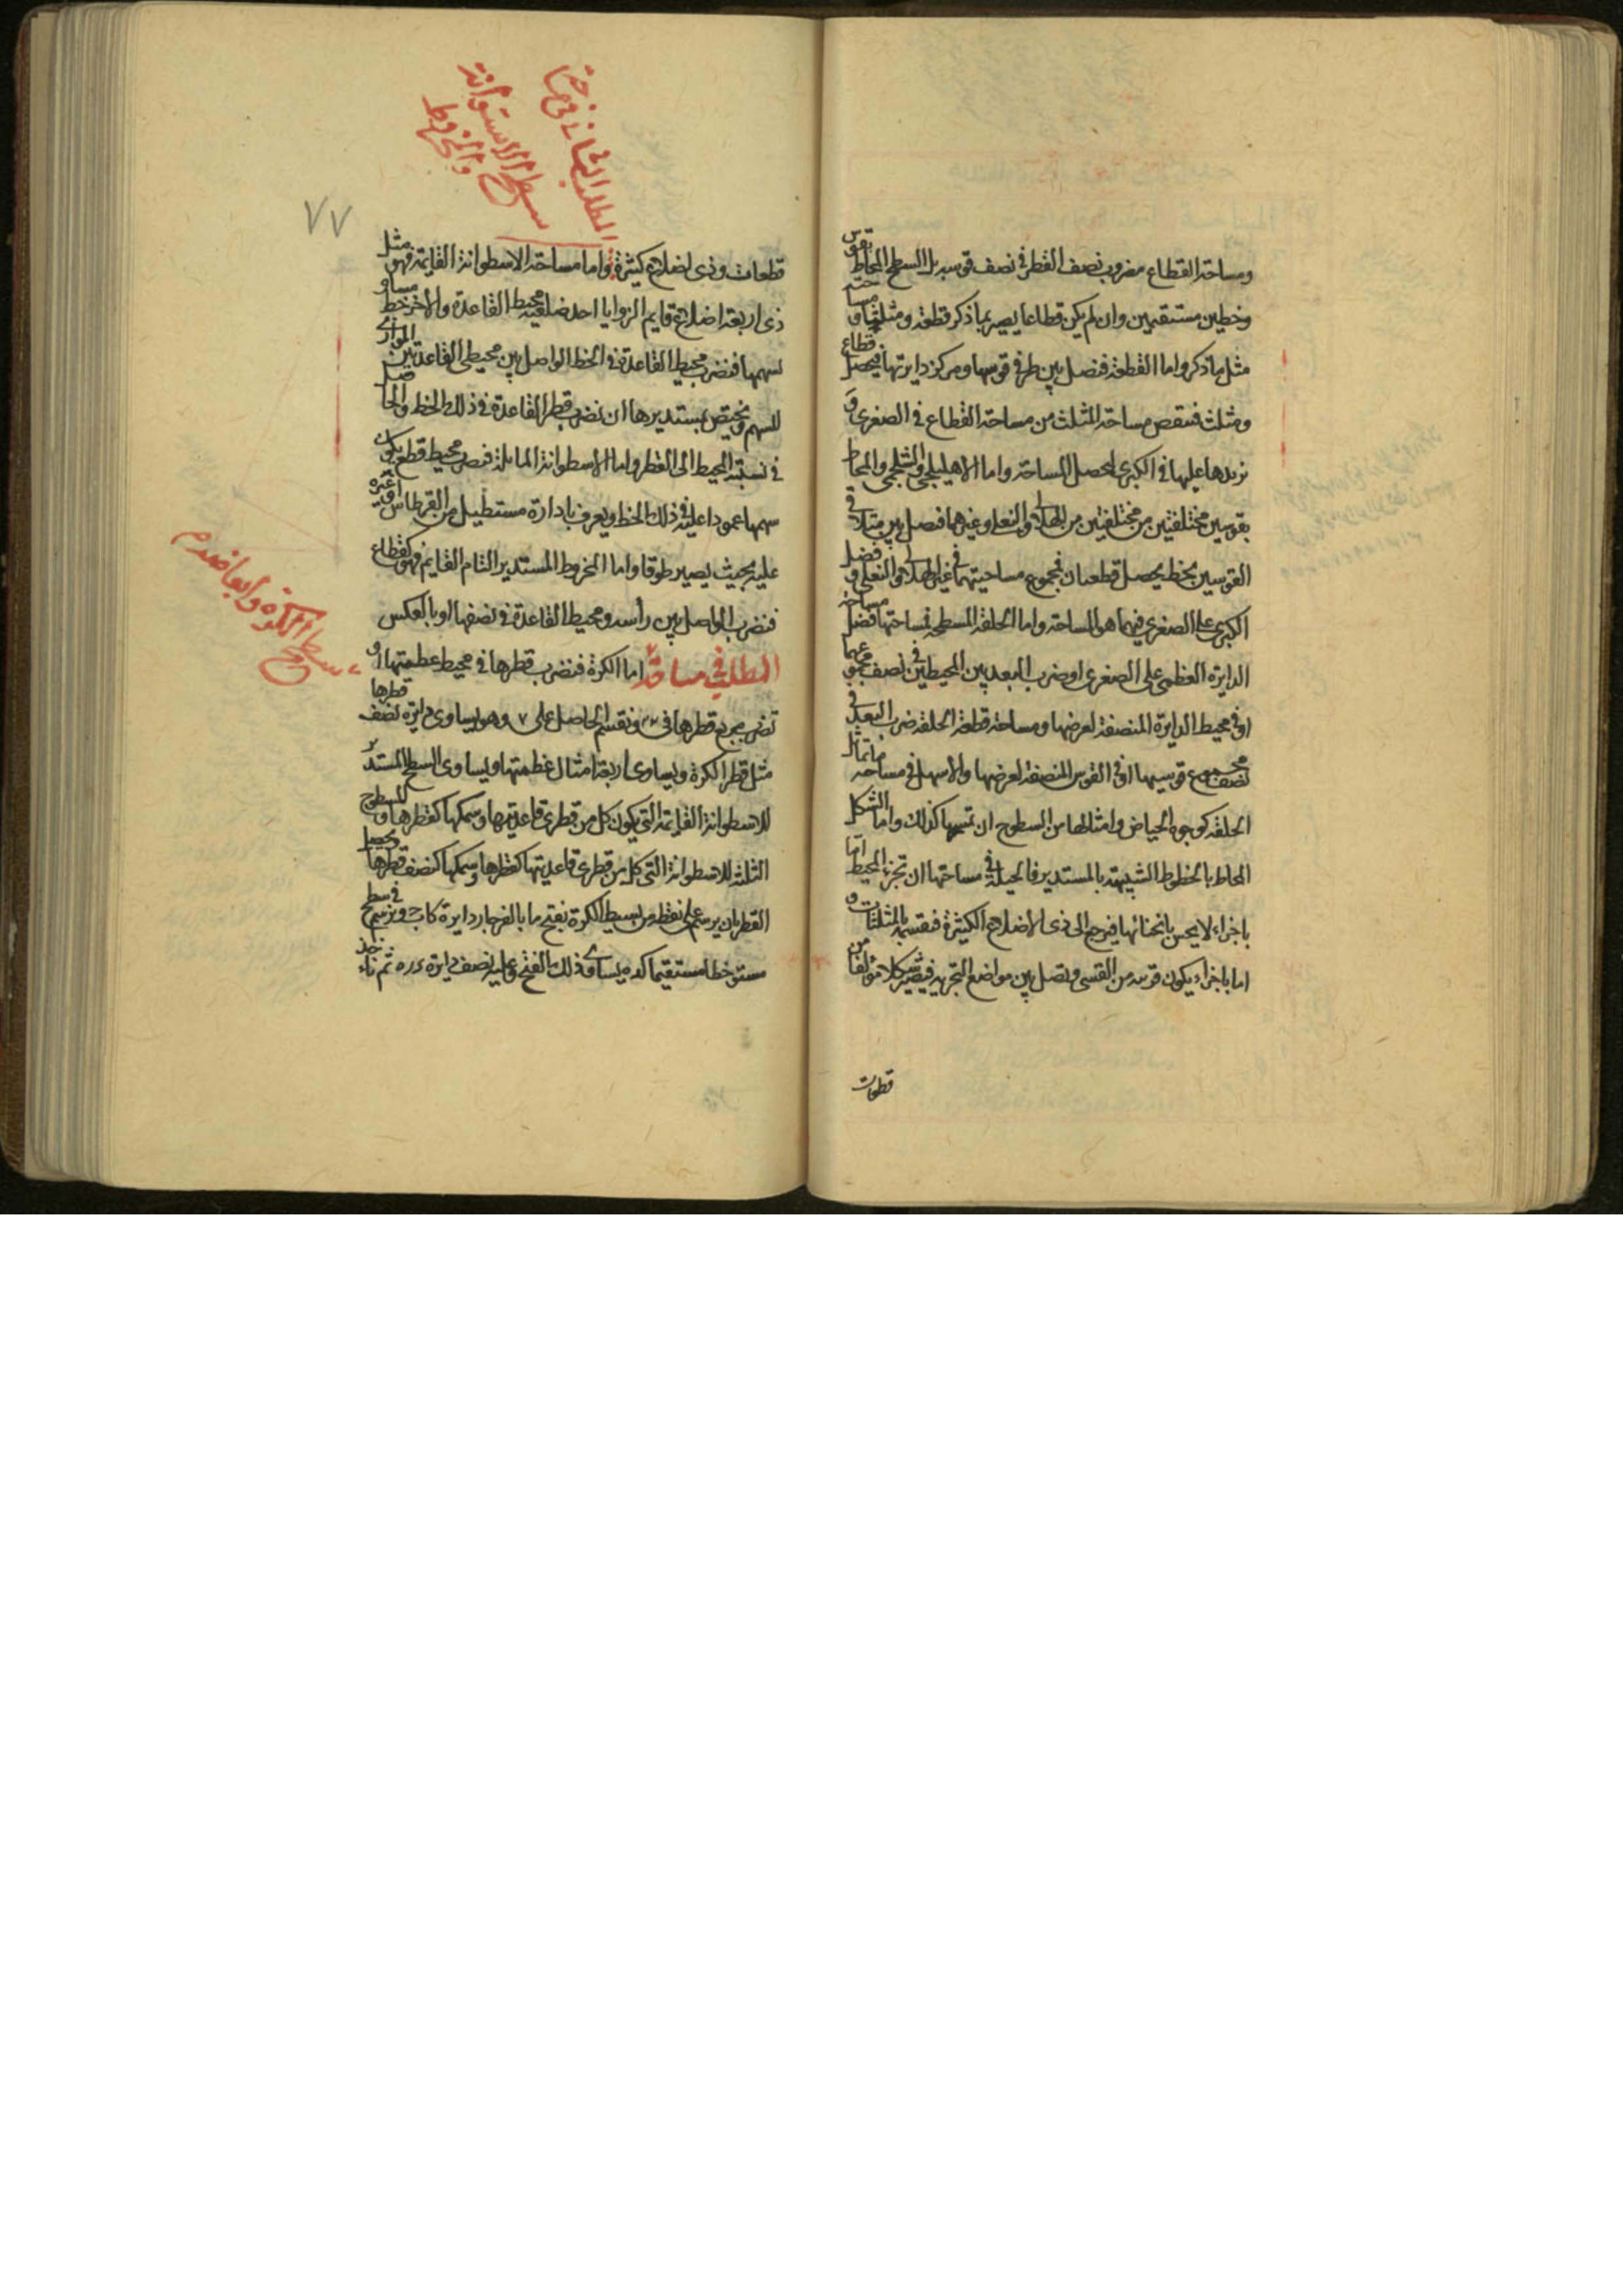 ومساحة القطاع مضروب نصف القطر في نصف قوسه بل السطح المحاط بقوس
وخطين مستقيمين وان لم يكن قطاعا يصير بما ذكر قطعة ومثلثا و مساحته
مثل ما ذكر واما القطعة فنصل بين طرفي قوسها ومركز دايرتها فيحصل قطاع
ومثلث فننقص مساحة المثلث من مساحة القطاع في الصغرى و
نزيدها عليها في الكبرى لتحصل المساحة واما الاهليلجي والشلجمي والمحاط
بقوسين مختلفتين من مختلفتين من الهلالي والنعلي وغيرهما فنصل بين متلاقي
القوسين بخط يحصل قطعتان فمجموع مساحتيهما في غير الهلالي والنعلي و فضل
الكبرى على الصغرى فيهما هو المساحة واما الحلقة المسطحة فمساحتها فضل مساحة
الدايرة العظمى على الصغرى او ضرب البعد بين المحيطين في نصف مجموعهما
او في محيط الدايرة المنصفة لعرضها ومساحة قطعة الحلقة ضرب البعد في
نصف مجموع قوسيها او في القوس المنصفة لعرضها والاسهل في مساحة ما تماثل
الحلقة كوجوه الحياض وامثالها من السطوح ان تمسحها كذلك واما الشكل
المحاط بالخطوط الشبيهة بالمستدير فالحيلة في مساحتها ان تجزئ المحيط اما
باجزاء لا يحس بانحنائها فيرجع الى ذي الاضلاع الكثيرة فنقسمه بالمثلثات و
اما باجزاء يكون قوسه من القسي ونصل بين مواضع التجزية فيصير شكلا مؤلفا من
قطعات
المطلب الثاني في مساحة
سطح الاستوانة
والمخروط
٧٧
قطعات وذي اضلاع كثيرة واما مساحة الاسطوانة القايمة فهو مثل
ذي اربعة اضلاع قايم الزوايا احد ضلعيه محيط القاعدة والاخر خط مساو
لسهمها فنضرب محيط القاعدة في الخط الواصل بين محيطي القاعدتين الموازي
للسهم ويختص بمستديرها ان نضرب قطر القاعدة في ذلك الخط والحاصل
في نسبة المحيط الى القطر واما الاسطوانة المائلة فنضرب محيط قطع يكون
سهمها عمودا عليه في ذلك الخط ويعرف بادارة مستطيل من القرطاس او غيره
عليه بحيث يصير طوقا واما المخروط المستدير التام القايم فهو كقطاع
فنضرب الواصل بين رأسه ومحيط القاعدة في نصفها او بالعكس
المطلب في مساحة اما الكرة فنضرب قطرها في محيط عظيمتها او
نضرب مربع قطرها في ٢٢ ونقسم الحاصل على ٧ وهو يساوي دايرة نصف قطرها
مثل قطر الكرة ويساوي اربعة امثال عظيمتها ويساوي السطح المستدير
للاسطوانة القايمة التي يكون كل من قطري قاعدتيها وسمكها كقطرها و للسطوح
الثلثة للاسطوانة التي كل من قطري قاعدتيها كقطرها وسمكها كنصف قطرها ويحصل
القطر بان يرسم على نقطة من بسيط الكرة بفتح ما بالفرجار دايرة كاب ونرسم في سطح
مستو خطا مستقيما يساوي ذلك الفتح وعليه نصف دايرة ثم ناخذ
سطح الكرة وابعاضه